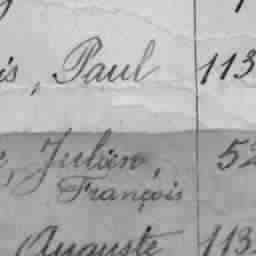 is, Paul 113
e, Julien, 52
François
Auguste 113